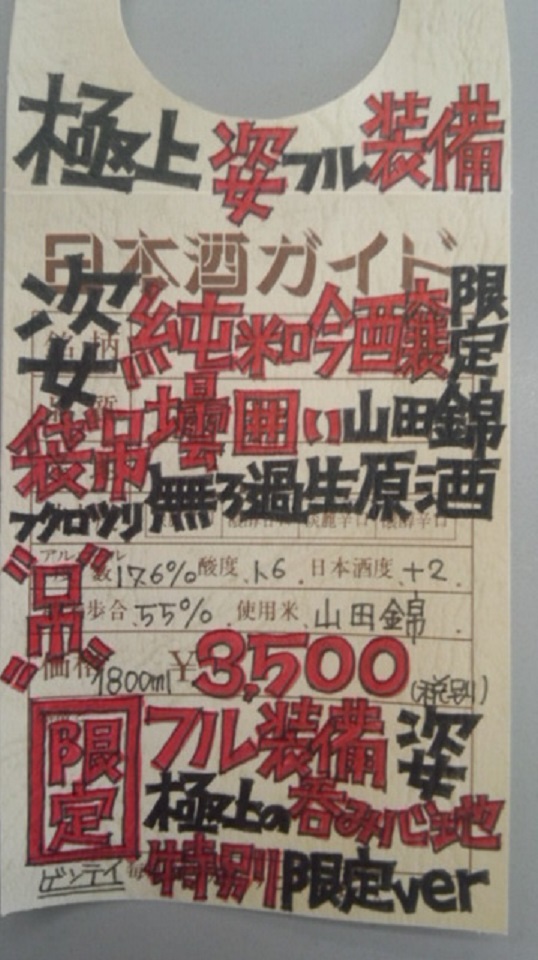 極上 姿 フル装備
日本酒ガイド
姿 純米吟醸 限定
袋吊 壜囲い 山田錦
フクロツリ 無ろ過生原酒
アルコール度数 17.6% 酸度 1.6 日本酒度 +2
"吊" 歩合 55% 使用米 山田錦
価格 1800ml ¥3,500 (税別)
限定 フル装備 姿
極上の呑み心地
ゲンテイ 特別限定ver